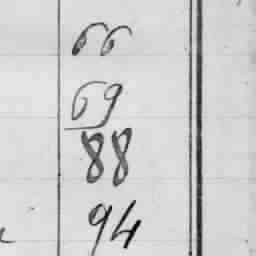 66
69
88
94